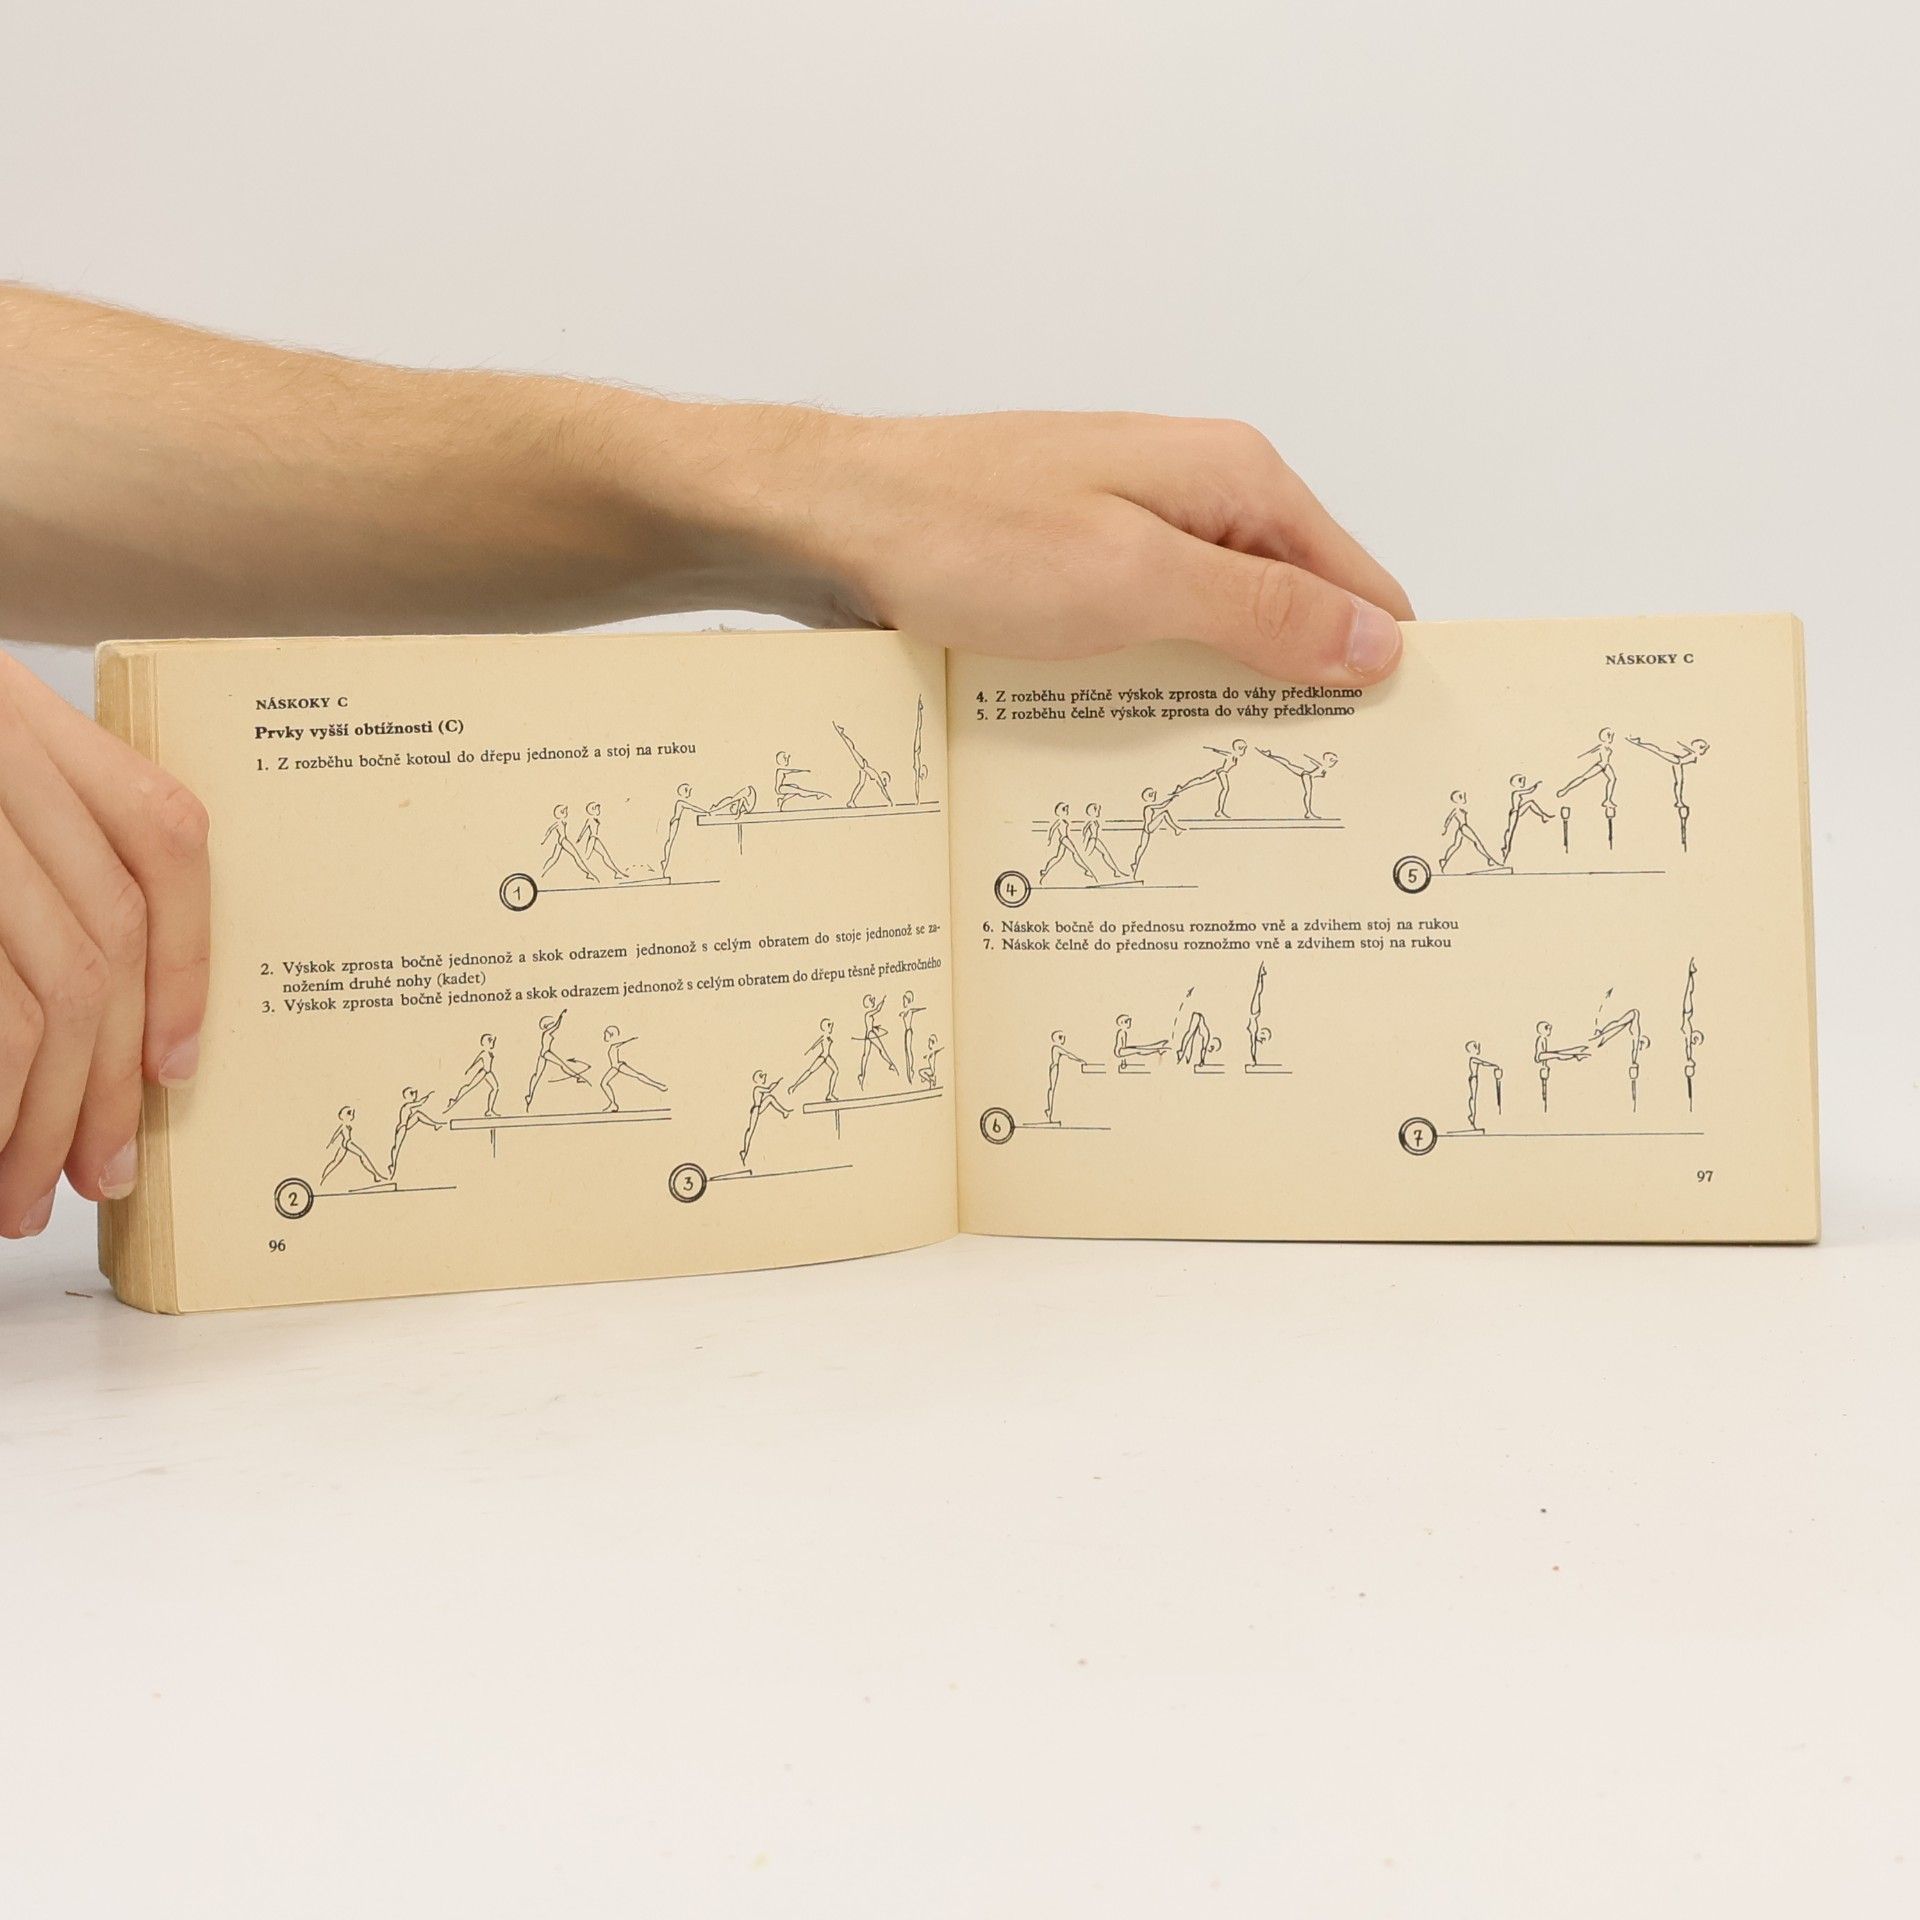 NÁSKOKY C
Prvky vyšší obtížnosti (C)
1. Z rozběhu bočně kotoul do dřepu jednonož a stoj na rukou
1
2. Výskok zprosta bočně jednonož a skok odrazem jednonož s celým obratem do stoje jednonož se za-
nožením druhé nohy (kadet)
3. Výskok zprosta bočně jednonož a skok odrazem jednonož s celým obratem do dřepu těsně předkročného
2
3
96
NÁSKOKY C
4. Z rozběhu příčně výskok zprosta do váhy předklonmo
5. Z rozběhu čelně výskok zprosta do váhy předklonmo
4
5
6. Náskok bočně do přednosu roznožmo vně a zdvihem stoj na rukou
7. Náskok čelně do přednosu roznožmo vně a zdvihem stoj na rukou
6
7
97